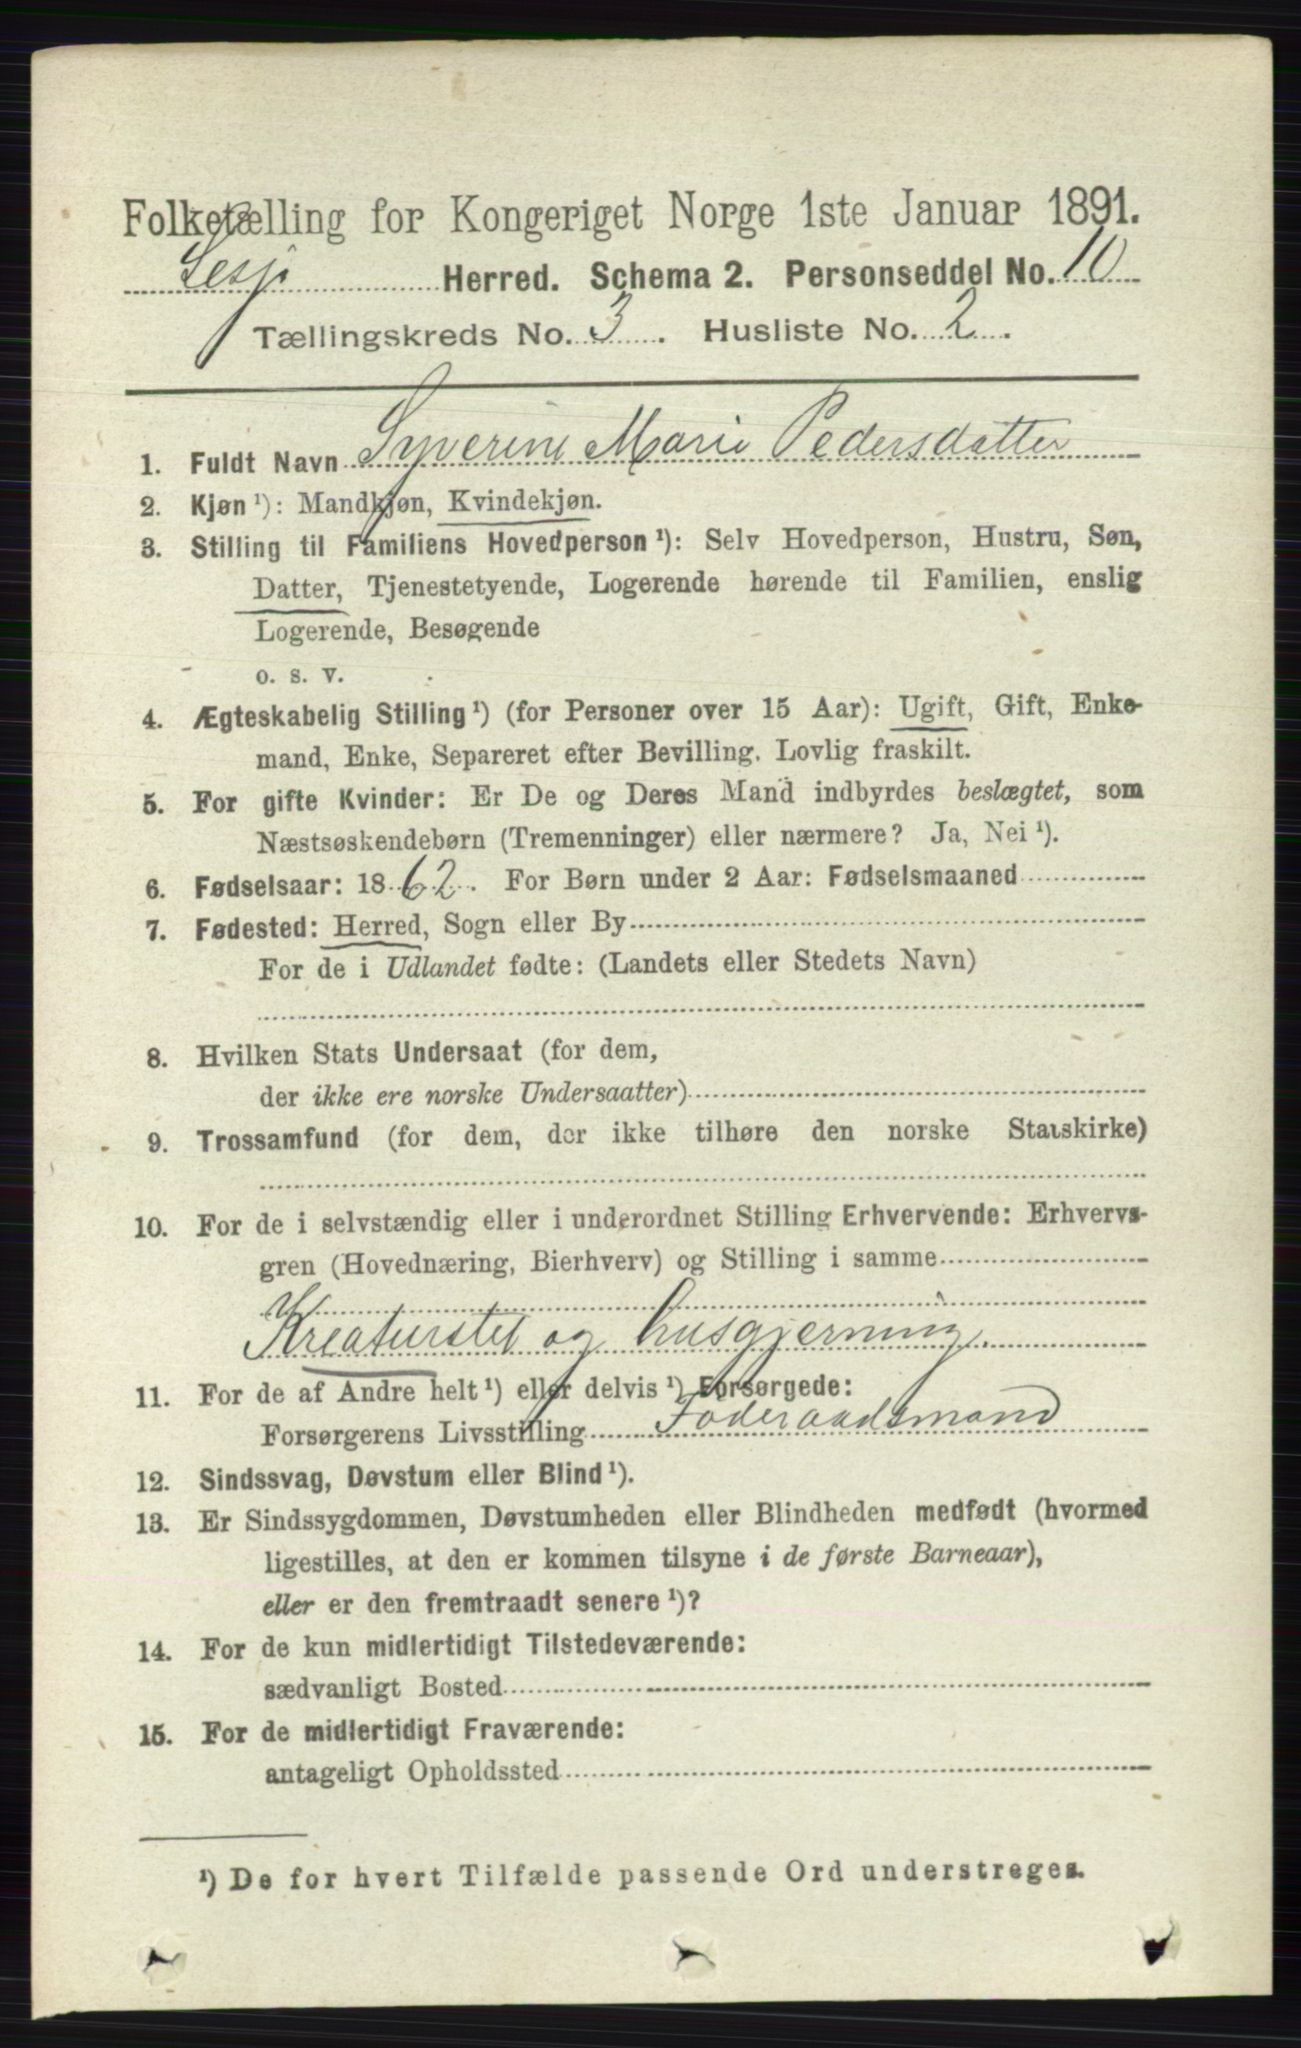 Folketælling for Kongeriget Norge 1ste Januar 1891.
Lesje Herred. Schema 2. Personseddel No. 10
Tællingskreds No. 3. Husliste No. 2.
1. Fuldt Navn Syverine Marie Pedersdatter
2. Kjøn ¹): Mandkjøn, Kvindekjøn.
3. Stilling til Familiens Hovedperson ¹): Selv Hovedperson, Hustru, Søn,
Datter, Tjenestetyende, Logerende hørende til Familien, enslig
Logerende, Besøgende
o. s. v.
4. Ægteskabelig Stilling ¹) (for Personer over 15 Aar): Ugift, Gift, Enke-
mand, Enke, Separeret efter Bevilling. Lovlig fraskilt.
5. For gifte Kvinder: Er De og Deres Mand indbyrdes beslægtet, som
Næstsøskendebørn (Tremenninger) eller nærmere? Ja, Nei ¹).
6. Fødselsaar: 1862. For Børn under 2 Aar: Fødselsmaaned
7. Fødested: Herred, Sogn eller By
For de i Udlandet fødte: (Landets eller Stedets Navn)
8. Hvilken Stats Undersaat (for dem,
der ikke ere norske Undersaatter)
9. Trossamfund (for dem, der ikke tilhøre den norske Statskirke)
10. For de i selvstændig eller i underordnet Stilling Erhvervende: Erhvervs-
gren (Hovednæring, Bierhverv) og Stilling i samme
Kreaturstel og husgjerning.
11. For de af Andre helt ¹) eller delvis ¹) Forsørgede:
Forsørgerens Livsstilling Föderaadsmand
12. Sindssvag, Døvstum eller Blind ¹).
13. Er Sindssygdommen, Døvstumheden eller Blindheden medfødt (hvormed
ligestilles, at den er kommen tilsyne i de første Barneaar),
eller er den fremtraadt senere ¹)?
14. For de kun midlertidigt Tilstedeværende:
sædvanligt Bosted
15. For de midlertidigt Fraværende:
antageligt Opholdssted
¹) De for hvert Tilfælde passende Ord understreges.